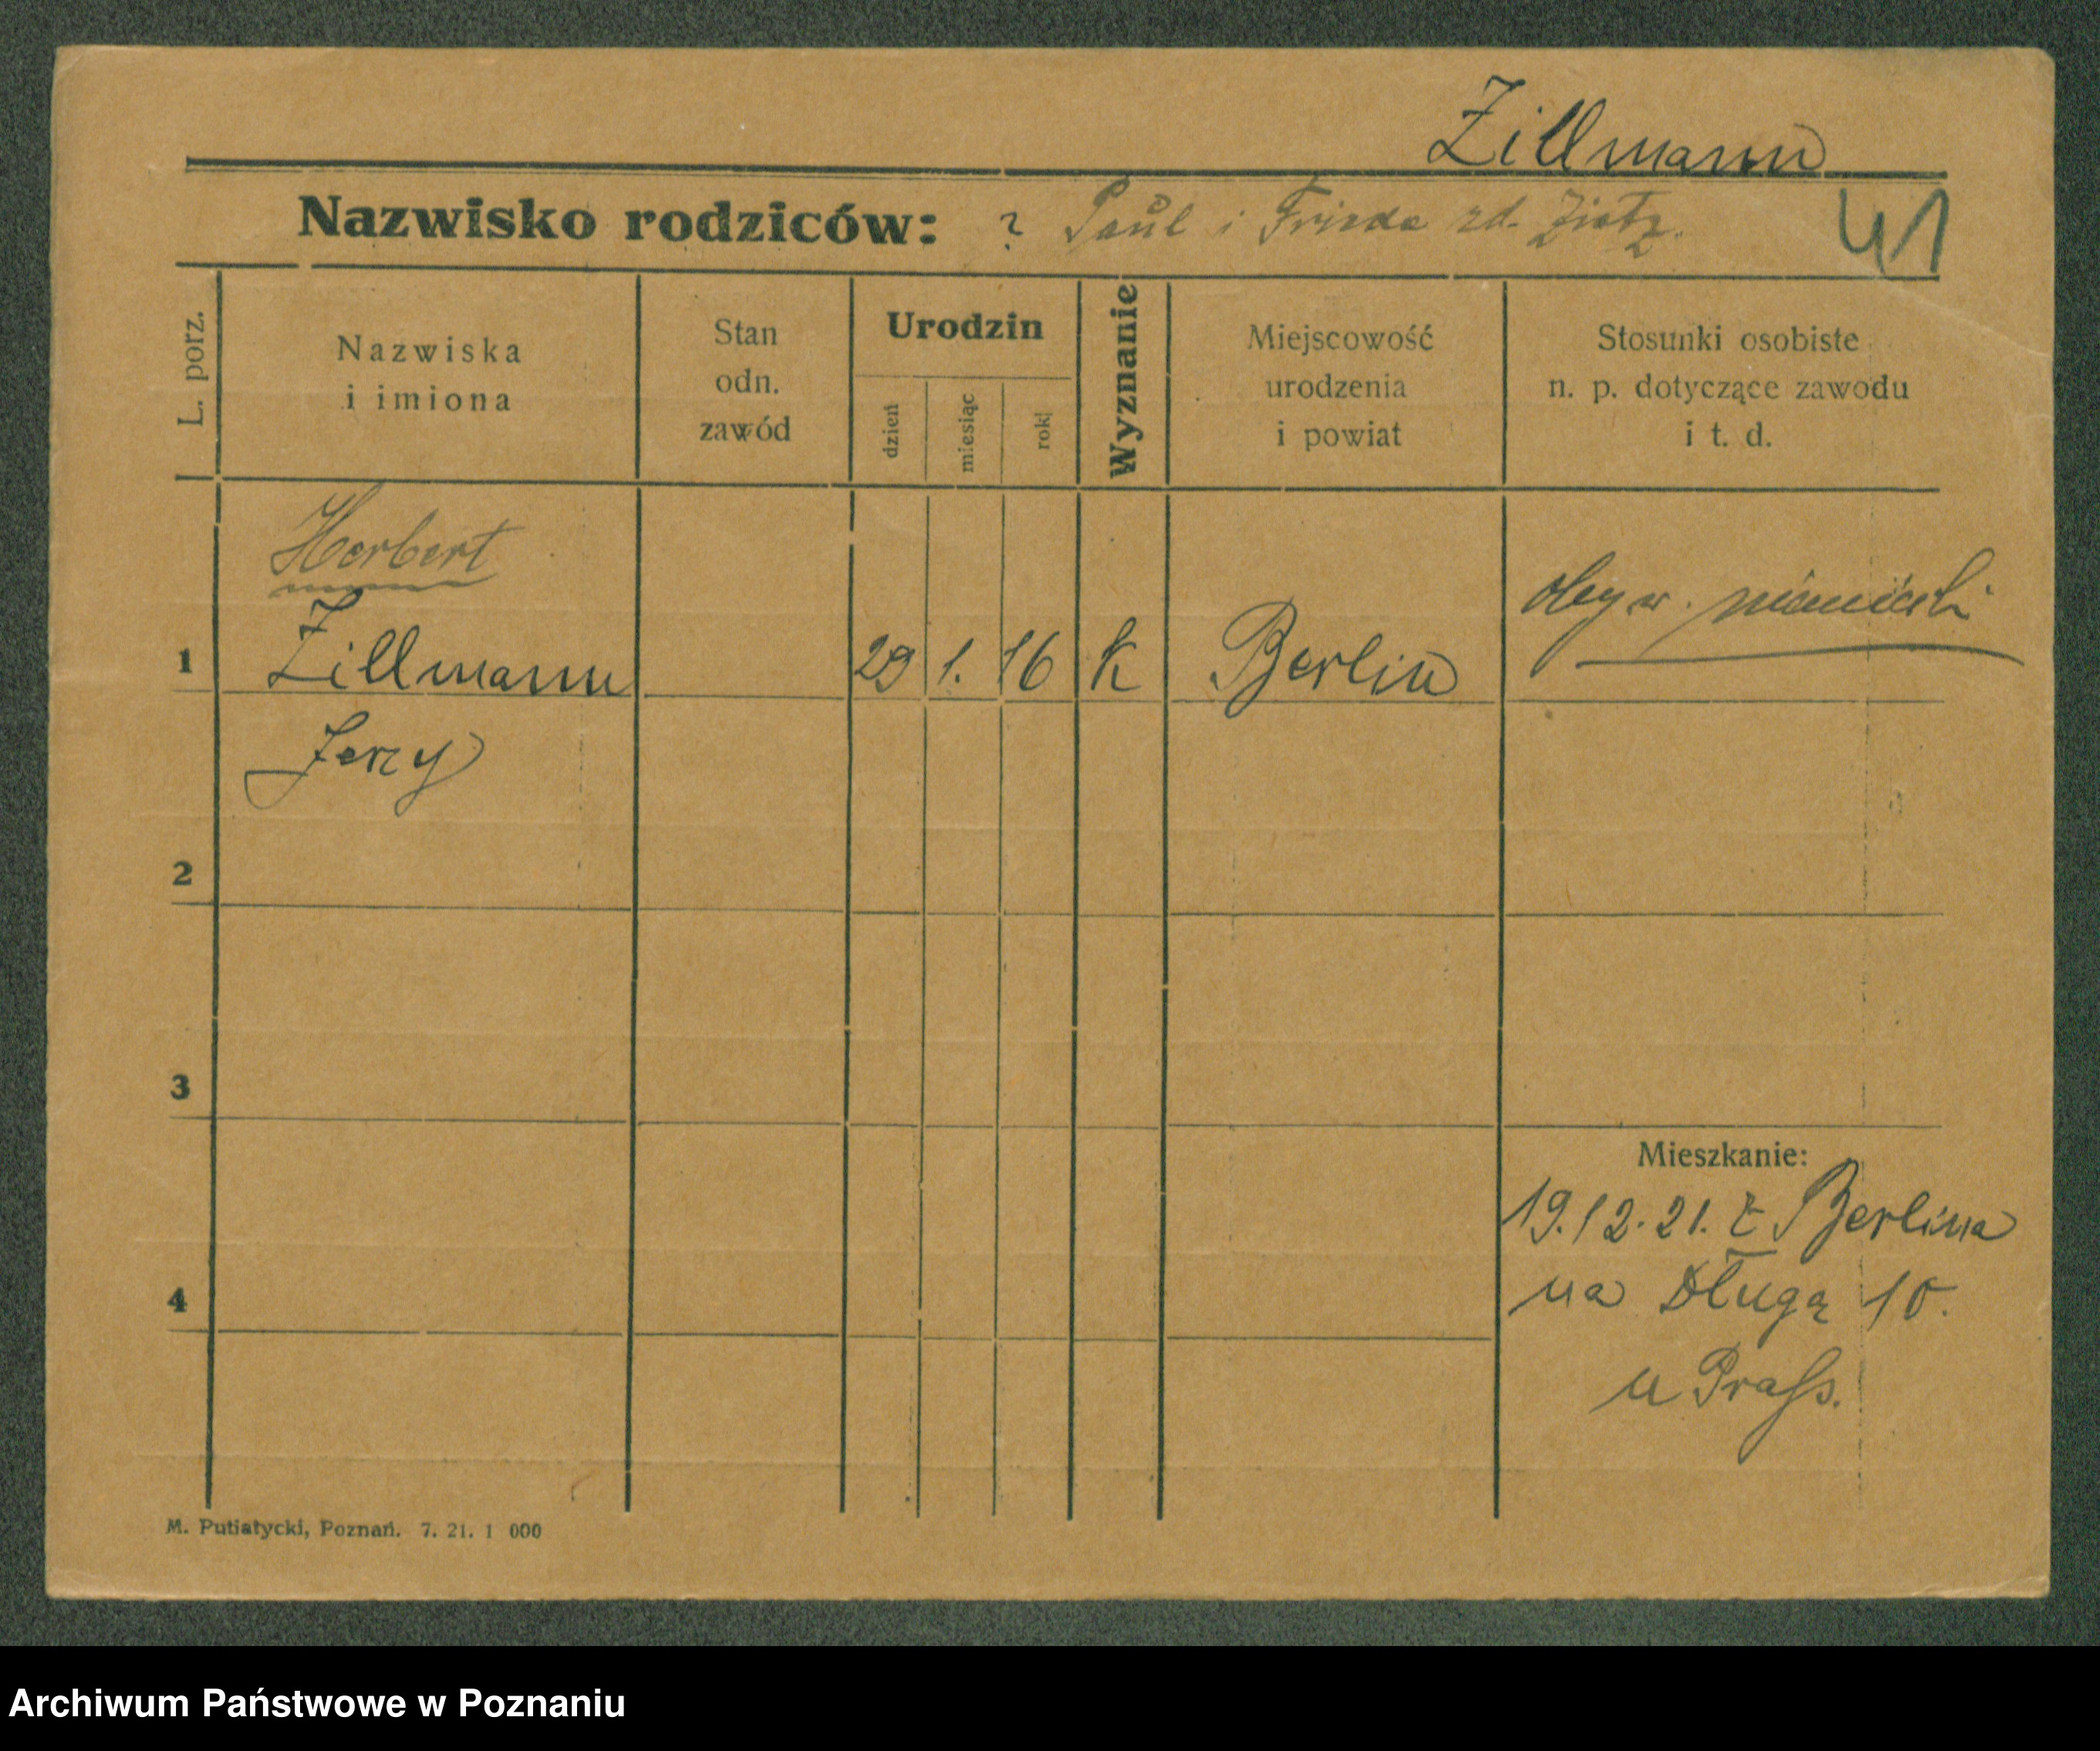 Zillmann
Nazwisko rodziców: ? Paul i Frieda rd. Zietz.
41
L. porz.
Nazwiska
i imiona
Stan
odn.
zawód
Urodzin
dzień
miesiąc
rok
Wyznanie
Miejscowość
urodzenia
i powiat
Stosunki osobiste
n. p. dotyczące zawodu
i t. d.
Herbert
1 Zillmann 29 1. 16 k Berlin
obyw. niemiecki
Jerzy
2
3
4
Mieszkanie:
19.12.21. z Berlina
na Długą 10.
u Prass.
M. Putiatycki, Poznań. 7. 21. 1 000
Archiwum Państwowe w Poznaniu